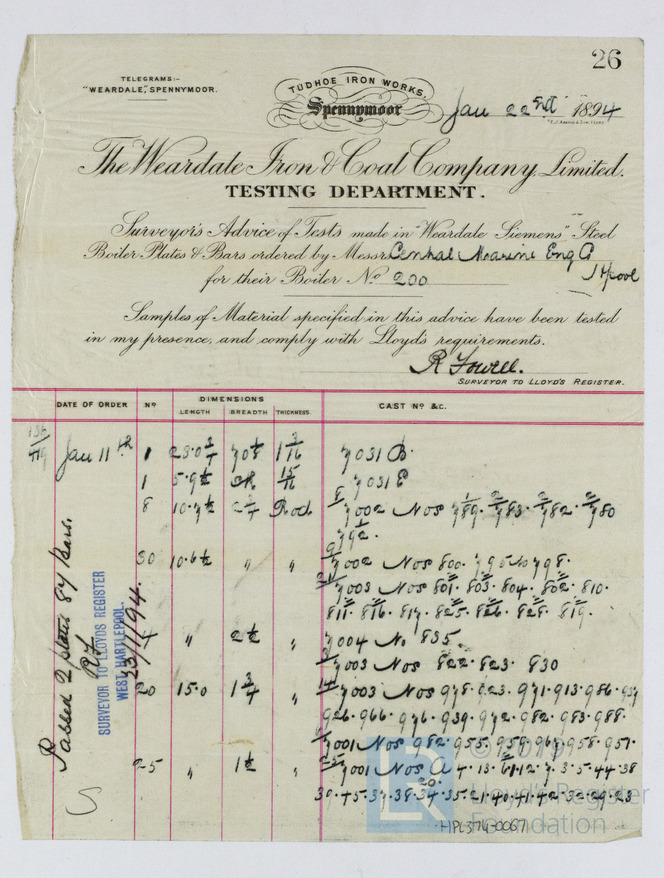 26
TELEGRAMS:-
"WEARDALE," SPENNYMOOR.
TUDHOE IRON WORKS.
Spennymoor
Jan 22nd 1894
The Weardale Iron & Coal Company, Limited.
TESTING DEPARTMENT.
Surveyor's Advice of Tests made in "Weardale Siemens" Steel
Boiler Plates & Bars ordered by Messrs Central Marine Eng Co
H'pool
for their Boiler No 200
Samples of Material specified in this advice have been tested
in my presence, and comply with Lloyd's requirements.
R Fowell.
SURVEYOR TO LLOYD'S REGISTER.
DATE OF ORDER No DIMENSIONS CAST No &c.
LENGTH BREADTH THICKNESS
Jan 11th 1 1 3/16 7031 B
1 5.9½ 15/16 7031 E
8 10.7½ Rod 7002 Nos 789. 783. 782. 780
792.
30 10.6½ " " 7002 Nos 800. 795 to 798.
7003 Nos 801. 803. 804. 802. 810.
811. 816. 817. 825. 826. 828. 819.
4 " 2½ " 7004 No 835
7003 Nos 822. 823. 830
20 15.0 1¾ " 7003 Nos 978. 923. 971. 913. 986.
926. 966. 976. 939. 972. 982. 983. 988.
7001 Nos 982. 955. 958. 957.
25 " 1½ " 7001 Nos
Passed 2 plates 87 bars.
RF
SURVEYOR TO LLOYDS REGISTER
WEST HARTLEPOOL.
23/1/94.
LR ©
Lloyd's Register
Foundation
HPL376-0067